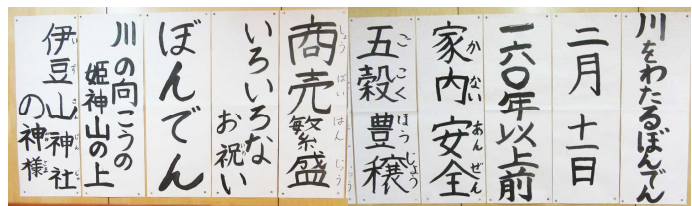 川をわたるぼんでん
二月十一日
一六〇年以上前
家内安全
かないあんぜん
五穀豊穣
ごこくほうじょう
商売繁盛
しょうばいはんじょう
いろいろな
お祝い
ぼんでん
川の向こうの
姫神山の上
伊豆山神社
いずさんじんじゃ
の神様